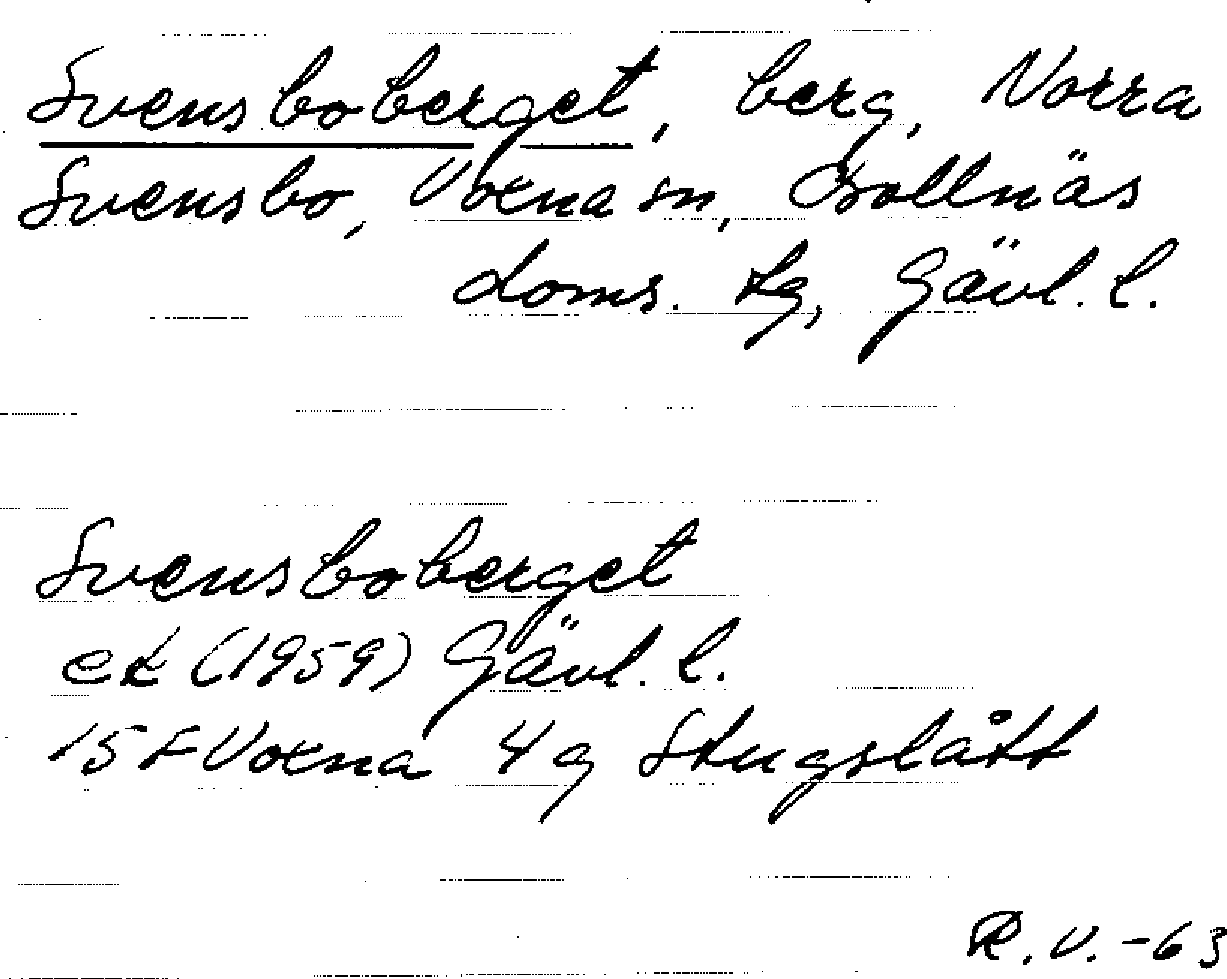 Svensboberget, berg, Norra
Svensbo, Voxna sn, Bollnäs
doms. tg, Gävl. l.
Svensboberget
ek (1959) Gävl. l.
15 F Voxna 4 g Stugslått
R.V. -63